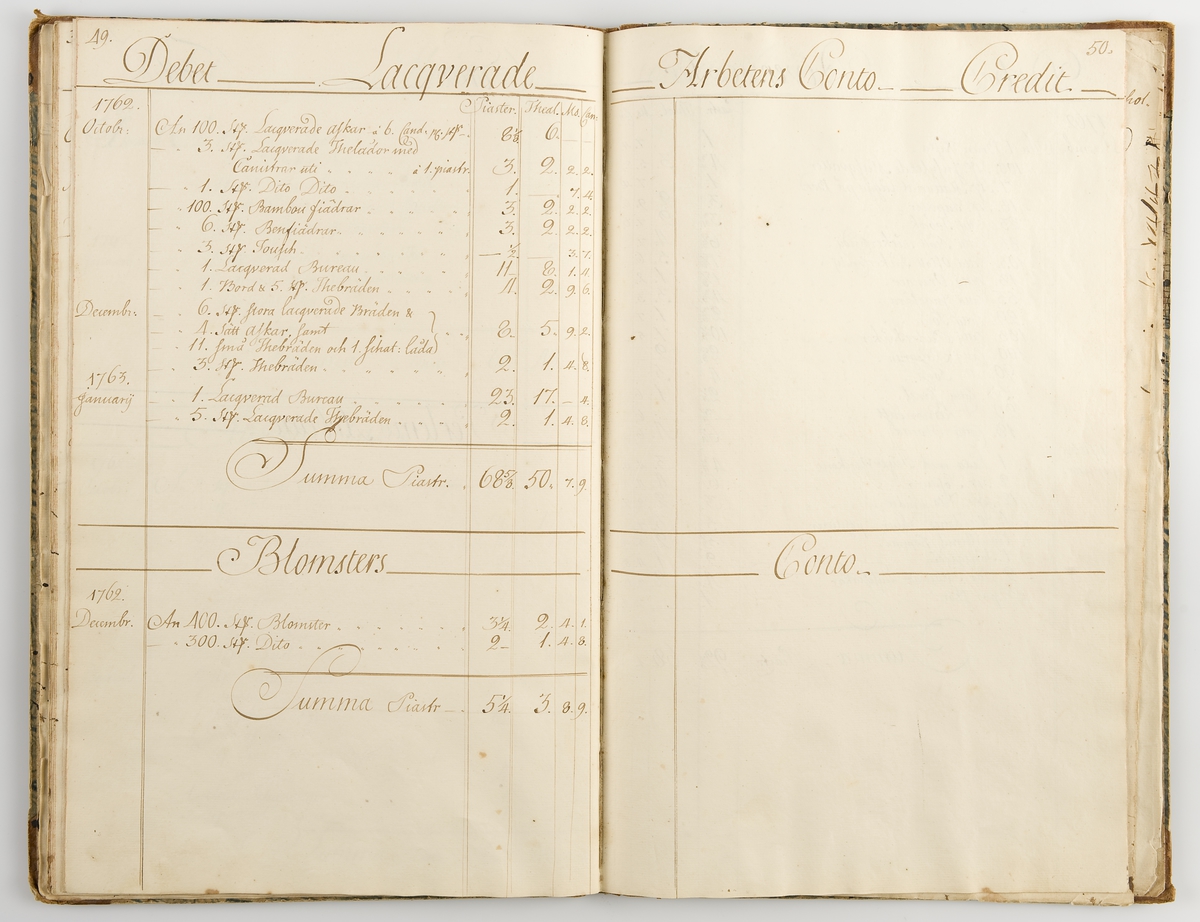 49.
Debet Lacqverade
1762. Piaster. Theal. Ms. Can.
Octobr: An 100. St. Lacqverade askar à 6. Cand. pr. st. 8 1/8 6. — —
3. St. Lacqverade Thelador med
Canistrar uti à 1. piastr. 3. 2. 2. 2.
1. St. Dito Dito 1. — 7. 4.
100. St. Bambou fiädrar 3. 2. 2. 2.
6. St. Benfiädrar 3. 2. 2. 2.
3. St. Tousch — 1/2 — 3. 7.
1. Lacqverad Bureau 11 8. 1. 4.
1. Bord & 5. St. Thebräden 4. 2. 9. 6.
Decembr: 6. St. stora lacqverade Bräden &
4. Sätt askar, samt 8. 5. 9. 2.
11. små Thebräden och 1. låda
3. St. Thebräden 2. 1. 4. 8.
1763.
Januarij 1. Lacqverad Bureau 23. 17. — 4.
5. St. Lacqverade Thebräden 2. 1. 4. 8.
Summa Piastr. 68 5/8. 50. 7. 9.
Blomsters
1762.
Decembr. An 400. St. Blomster 3 1/4. 2. 4. 1.
300. St. Dito 2 — 1. 4. 8.
Summa Piastr 5 1/4. 3. 8. 9.
50.
Arbetens Conto Credit.
Conto
hol.